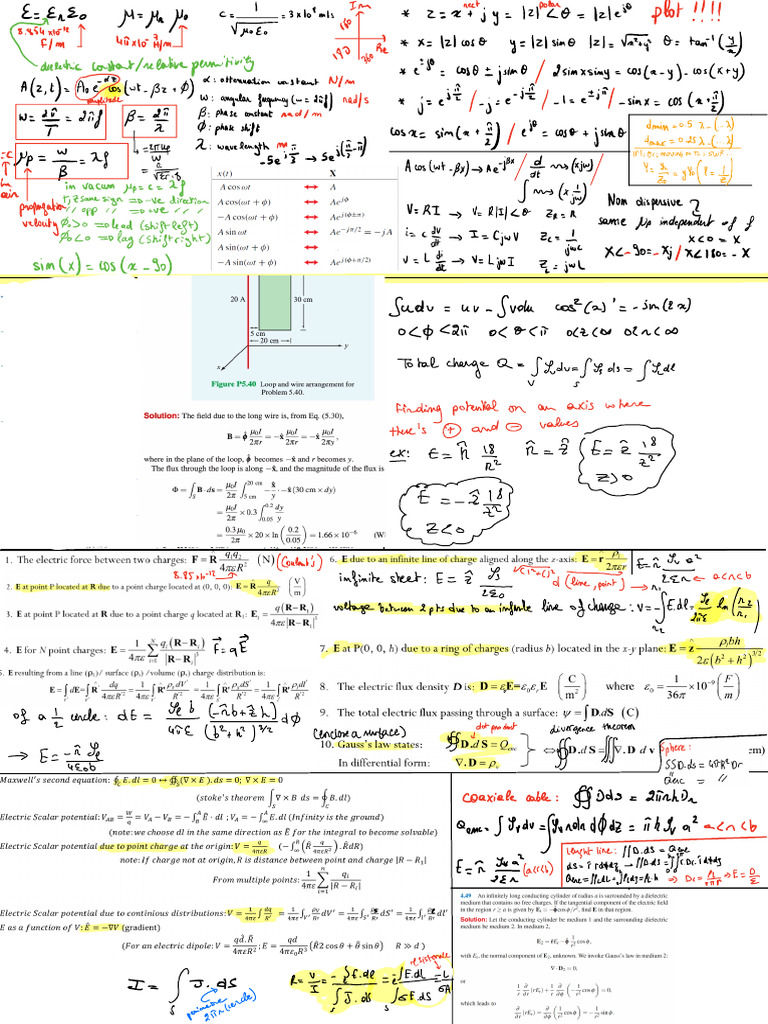 ε = εr ε0
8.854 × 10⁻¹² F/m
μ = μr μ0
4π×10⁻⁷ H/m
c = 1/√(μ0 ε0) = 3×10⁸ m/s
Im
Re
dielectric constant/relative permittivity
A(z,t) = A0 e^{-αz} cos(ωt - βz + ϕ)
amplitude
ω = 2π/T = 2πf
β = 2π/λ
μp = ω/β = λf
propagation velocity
α: attenuation constant N/m
ω: angular frequency (ω = 2πf) rad/s
β: phase constant rad/m
ϕ: phase shift
λ: wavelength m
in vacum μp = c = λf
t,z same sign ⇒ -ve direction
" opp " ⇒ +ve " "
ϕ0>0 ⇒ lead (shift left)
ϕ0<0 ⇒ lag (shift right)
sin(x) = cos(x - 90)
x(t) X
A cos ωt ↔ A
A cos(ωt + ϕ) ↔ Ae^{jϕ}
−A cos(ωt + ϕ) ↔ Ae^{j(ϕ±π)}
A sin ωt ↔ Ae^{−jπ/2} = −jA
A sin(ωt + ϕ) ↔
−A sin(ωt + ϕ) ↔ Ae^{j(ϕ+π/2)}
* z = x + jy = |z|∠θ = |z|e^{jθ} plot !!!!
rect
polar
* x = |z| cosθ y = |z| sinθ |z| = √(x²+y²) θ = tan⁻¹(y/x)
* e^{±jθ} = cosθ ± j sinθ / 2 sinx siny = cos(x-y) - cos(x+y)
* j = e^{jπ/2} / -j = e^{-jπ/2} / -1 = e^{±jπ} / -sinx = cos(x+π/2)
cosx = sin(x+π/2) / e^{jθ} = cosθ + j sinθ
A cos(ωt - βx) → Ae^{-jβx} / d/dt ⇝ (×jω)
∫ ⇝ (× 1/jω)
V = RI → V = R|I|∠θ ZR = R
i = c dv/dt → I = CjωV Zc = 1/jωc
v = L di/dt → V = LjωI ZL = jωL
Non dispersive
same μp independent of f
x<0 = x
x∠-90 = -xj / x∠180 = -x
20 A
30 cm
5 cm
20 cm
y
x
Figure P5.40 Loop and wire arrangement for
Problem 5.40.
Solution: The field due to the long wire is, from Eq. (5.30),
B = ϕ̂ μ0I/2πr = −x̂ μ0I/2πr = −x̂ μ0I/2πy,
where in the plane of the loop, ϕ̂ becomes −x̂ and r becomes y.
The flux through the loop is along −x̂, and the magnitude of the flux is
Φ = ∫S B · ds = μ0I/2π ∫5 cm^20 cm −x̂/y · −x̂(30 cm × dy)
= μ0I/2π × 0.3 ∫0.05^0.2 dy/y
= 0.3μ0/2π × 20 × ln(0.2/0.05) = 1.66 × 10⁻⁶ (W
∫udv = uv - ∫vdu cos²(x)' = -sin(2x)
0<ϕ<2π 0<θ<π 0<z<∞ 0<r<∞
Total charge Q = ∫V ρv dv = ∫S ρs ds = ∫ρl dl
Finding potential on an axis where
there's + and - values
ex: E = R̂ 18/R² R̂ = ẑ
E = ẑ 18/z²
z>0
E = -ẑ 18/z²
z<0
1. The electric force between two charges: F = R̂ q1q2/4πεR² (N) (coulomb's)
8.85×10⁻¹²
2. E at point P located at R due to a point charge at (0, 0, 0): E = R̂ q/4πεR² (V/m)
3. E at point P located at R due to a point charge q located at R1: E1 = q(R−R1)/4πε|R−R1|³
4. E for N point charges: E = 1/4πε Σi=1^N qi(R−Ri)/|R−Ri|³ F = qE
5. E resulting from a line (ρl)/ surface (ρs) /volume (ρv) charge distribution is:
E = ∫dE = ∫R̂' dq/4πεR'² = 1/4πε ∫R̂' ρv dV'/R'² = 1/4πε ∫R̂' ρs dS'/R'² = 1/4πε ∫R̂' ρl dl'/R'²
of a 1/2 circle: dE = ρl b/4πε (-r̂b + ẑh)/(b²+h²)^{3/2} dϕ
→ E = -r̂ρl/4ε0b
6. E due to an infinite line of charge aligned along the z-axis: E = r̂ ρl/2πεr
infinite sheet: E = ẑ ρs/2ε0
d(line, point)
E = r̂ ρv a²/2εr ← a<r<b
voltage between 2 pts due to an infinite line of charge: V = -∫E.dl = ρl/2πε ln(r2/r1)
7. E at P(0, 0, h) due to a ring of charges (radius b) located in the x-y plane: E = ẑ ρl bh/2ε(b²+h²)^{3/2}
8. The electric flux density D is: D = εE = εrε0E (C/m²) where ε0 = 1/36π × 10⁻⁹ (F/m)
9. The total electric flux passing through a surface: ψ = ∫D.dS (C)
(enclose a surface)
dot product
divergence theorem
10. Gauss's law states: ∯D.dS = Qenc ⇔ ∯D.dS = ∫∇.D dv
em)
In differential form: ∇.D = ρv
Sphere:
∬D.ds = 4πR²Dr
Qenc = "
Maxwell's second equation: ∮c E.dl = 0 ↔ ∯s(∇×E).ds = 0; ∇×E = 0
(stoke's theorem ∫S ∇×B ds = ∮C B.dl)
Electric Scalar potential: VAB = W/q = VA − VB = −∫B^A Ē·dl; VA = −∫∞^A E.dl (Infinity is the ground)
(note: we choose dl in the same direction as Ē for the integral to become solvable)
Electric Scalar potential due to point charge at the origin: V = q/4πεR, (−∫∞^R(R̂ q/4πεR²).R̂dR)
note: If charge not at origin, R is distance between point and charge |R − R1|
From multiple points: 1/4πε Σi=1^n qi/|R − Ri|
Electric Scalar potential due to continious distributions: V = 1/4πε ∫dq/R' = 1/4πε ∫v' ρv/R' dV' = 1/4πε ∫s' ρs/R' dS' = 1/4πε ∫l' ρl/R' dl'
E as a function of V: Ē = −∇V (gradient)
(For an electric dipole: V = qd.R̂/4πεR²; E = qd/4πε0R³ (R̂2 cos θ + θ̂ sin θ) R ≫ d )
I = ∫S J.ds
perimeter 2πr (circle)
resistance
R = V/I = -∫E.dl/∫S J.ds = -∫E.dl/∫S σE.ds = L/σA
coaxiale cable: ∯Dds = 2πrhDr
Qenc = ∫ρv dv = ∫ρv r dr dϕ dz = πhρv a² a<r<b
E = r̂ ρv a²/2εr (a<r<b)
4.49 An infinitely long conducting cylinder of radius a is surrounded by a dielectric
medium that contains no free charges. If the tangential component of the electric field
in the region r ≥ a is given by Et = −ϕ̂ cos ϕ/r², find E in that region.
Solution: Let the conducting cylinder be medium 1 and the surrounding dielectric
medium be medium 2. In medium 2,
E2 = r̂Er − ϕ̂ 1/r² cos ϕ,
with Er, the normal component of E2, unknown. We invoke Gauss's law in medium 2:
∇·D2 = 0,
or
1/r ∂/∂r (rEr) + 1/r ∂/∂ϕ (−1/r² cos ϕ) = 0,
which leads to
∂/∂r (rEr) = ∂/∂ϕ (1/r² cos ϕ) = −1/r² sin ϕ.